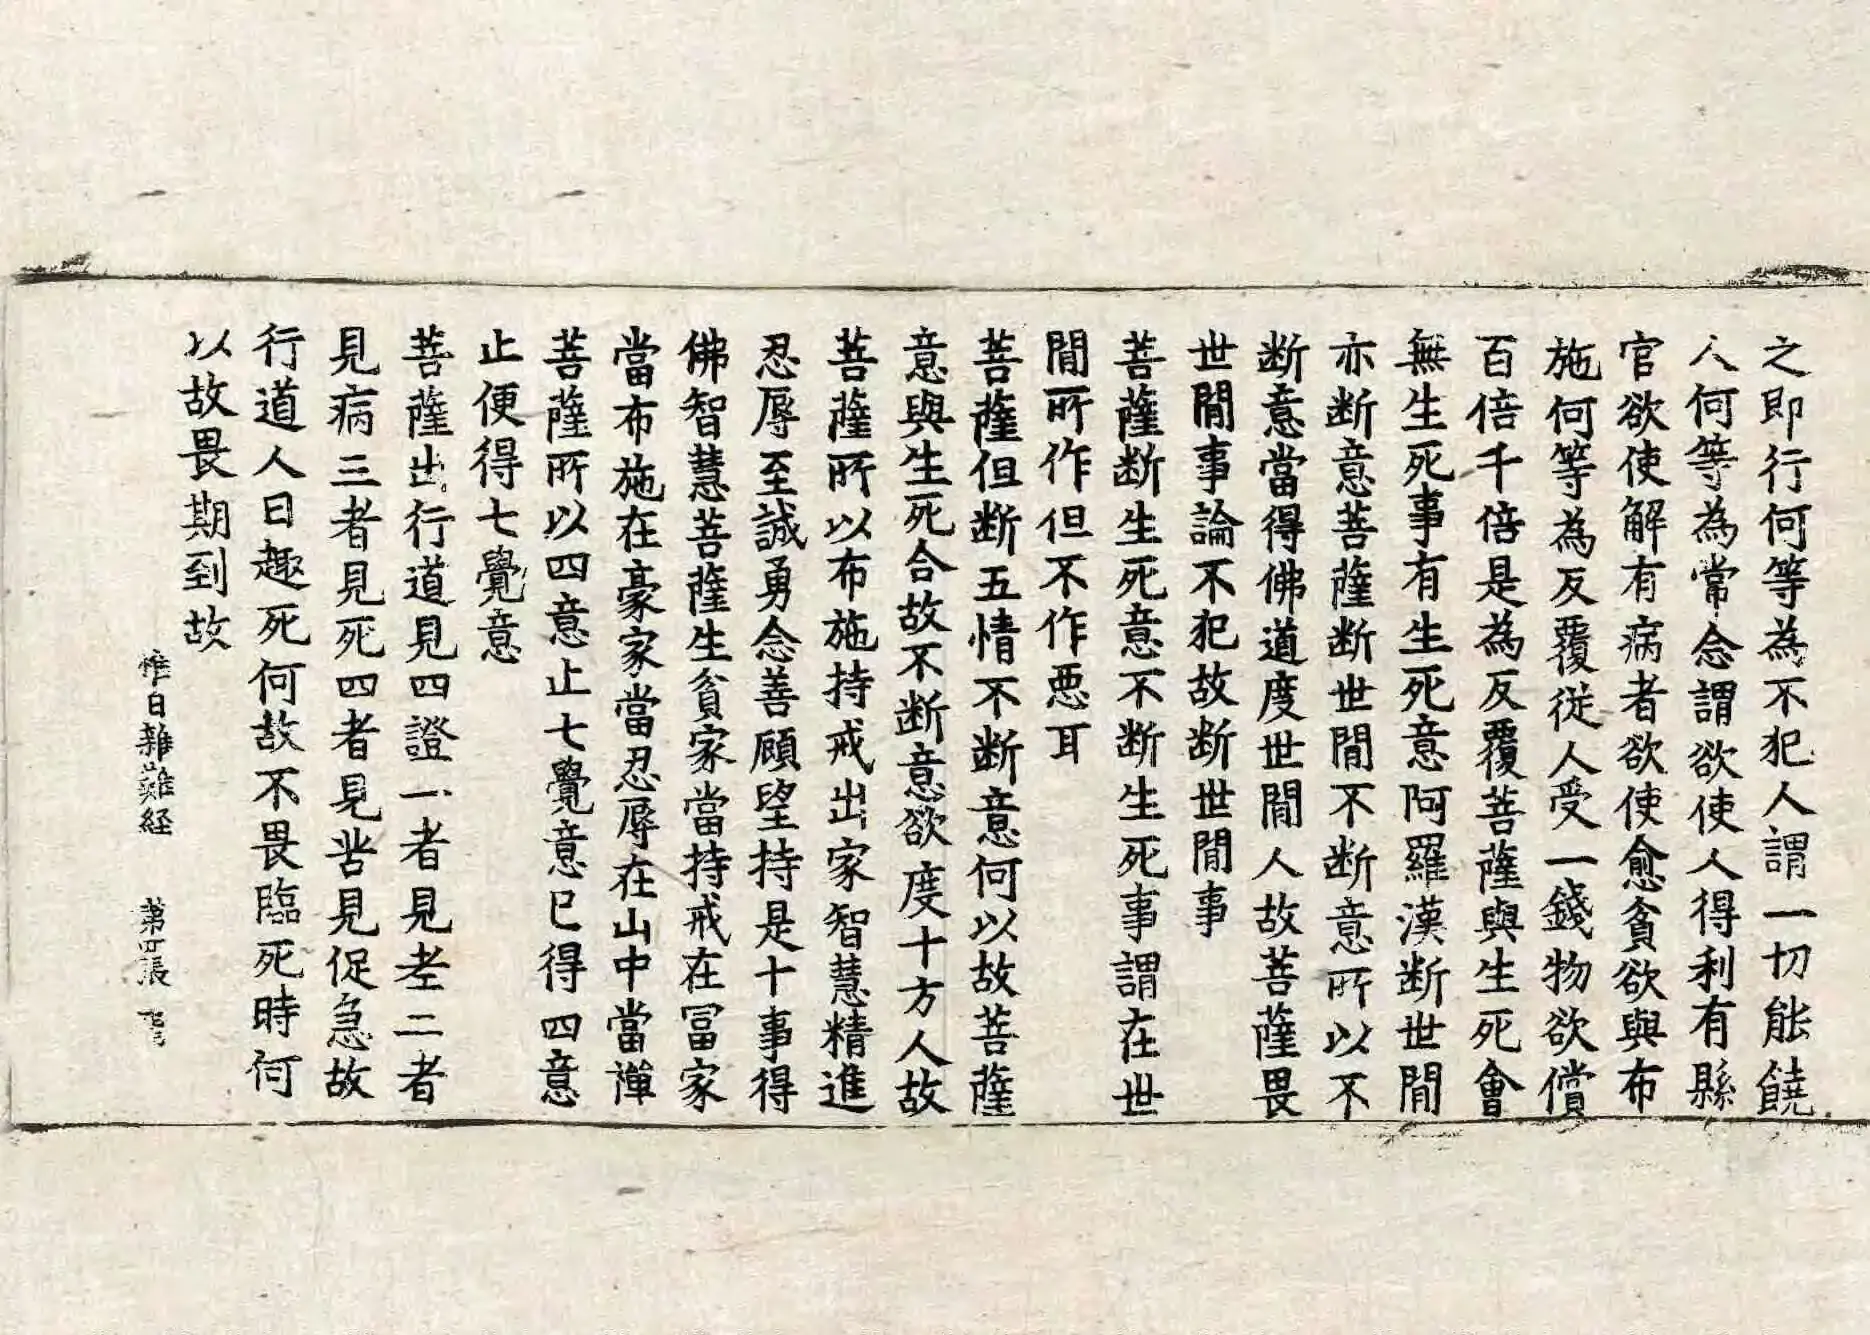 之即行何等為不犯人謂一切能饒
人何等為常念謂欲使人得利有縣
官欲使解有病者欲使愈貧欲與布
施何等為反覆従人受一錢物欲償
百倍千倍是為反覆菩薩與生死會
無生死事有生死意阿羅漢断世閒
亦断意菩薩断世閒不断意所以不
断意當得佛道度世閒人故菩薩畏
世閒事論不犯故断世閒事
菩薩断生死意不断生死事謂在世
閒所作但不作惡耳
菩薩但断五情不断意何以故菩薩
意與生死合故不断意欲度十方人故
菩薩所以布施持戒出家智慧精進
忍辱至誠勇念善顧望持是十事得
佛智慧菩薩生貧家當持戒在冨家
當布施在豪家當忍辱在山中當禪
菩薩所以四意止七覺意已得四意
止便得七覺意
菩薩出行道見四證一者見老二者
見病三者見死四者見苦見促急故
行道人曰趣死何故不畏臨死時何
以故畏期到故
惟日雜難経 第四張